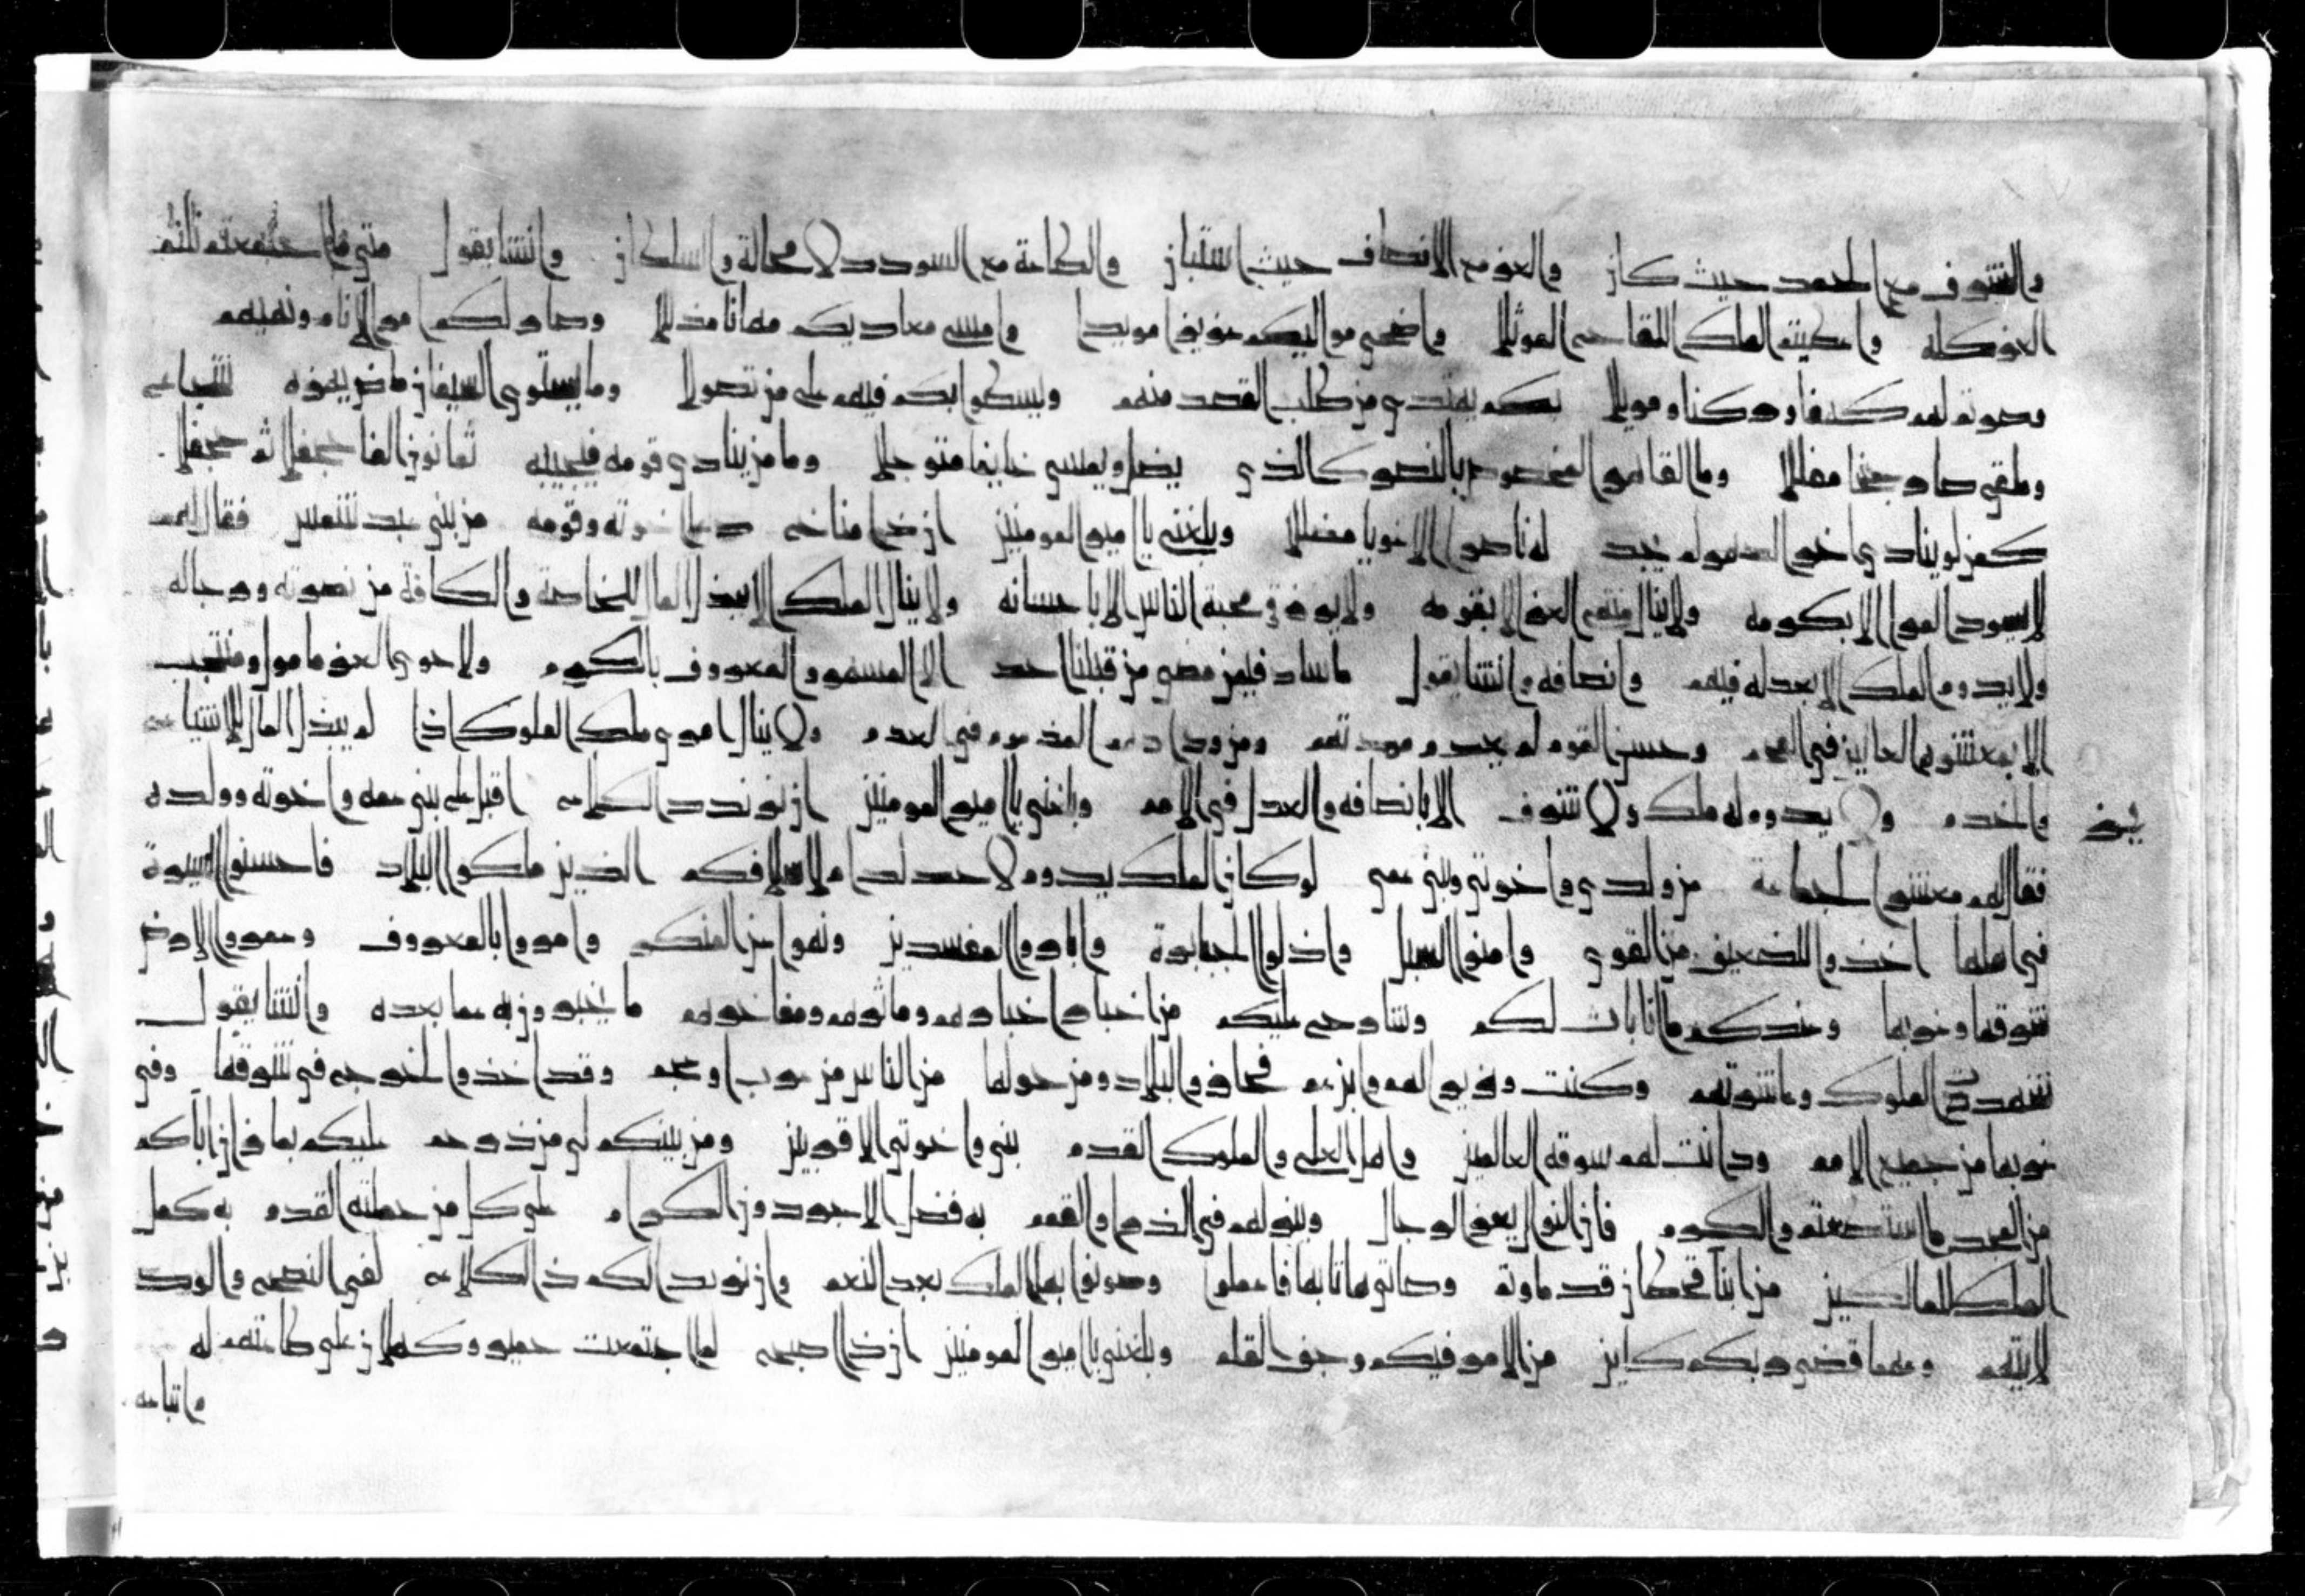 والشرف مع الحمد حيث كان والعز مع الانصاف حيث استبان والطاعة مع السودد لا محالة والسلطان وانشا يقول متى ما اجتمعتم نلتم
العز كله واعطيتم الملك القديم المؤثلا واضحى مواليكم عزيزا مويدا وامسى معاديكم مهانا مذللا وصار لكم امر الانام ونهيهم
وصرتم لهم كهفا وركنا ومويلا بكم يهتدي من طلب القصد منهم ويسطوا بكم فيهم على من تصولا وما يستوي السيفان ماض يهزه شجاع
وملقى صار جفنا مفللا وما القايم المخصوص بالنصر كالذي يضل ويمسي خايفا متوجلا وما من ينادي قومه فتجيبه ثمانون الفا جحفلا ثم جحفلا
كمن لو ينادي اخر الدهر لم يجد له ناصرا الا غويا مضللا وبلغني يا امير المومنين ان ذا مناخ دعا اخوته وقومه من بني عبد شمس فقال لهم
لا يسود المرا الا بكرمه ولا ينال منهم العز الا بقومه ولا يرزق محبة الناس الا باحسانه ولا ينال الملك الا ببذل المال للخاصة والكافة من نصرته ورجاله
ولا يدوم الملك الا بعدله فيهم وانصافه وانشا يقول ما ساد فيمن مضى من قبلنا احد الا المسمى والمعروف بالكرم ولا حوى العز مامول ومنتجب
الا بمعشره العالين في الهمم وحسن القوم لم يعدم مودتهم ومن ودادهم المذموم في العدم ولا ينال امري ملك الملوك اذا لم يبذل المال للاشياع
والخدم ولا يدوم له ملك ولا شرف الا بانصافه والعدل في الامم وبلغني يا امير المومنين ان يزيد ذا الكلاع اقبل على بني عمه واخوته وولده
فقال لهم معشر الجماعة من ولدي واخوتي وبني عمي لو كان الملك يدوم لاحد لدام لاسلافكم الذين ملكوا البلاد فاحسنوا السيرة
في اهلها اخذوا للضعيف من القوي وامنوا السبل واذلوا الجبابرة وابادوا المفسدين ونهوا عن المنكر وامروا بالمعروف وعمروا الارض
شرقها وغربها وعندكم ما انا باث لكم وشارحه عليكم من اخبار اخبارهم وماثرهم ومفاخرهم ما يخبرون به عما بعده وانشا يقول
شهدت الملوك وعاشرتهم وكنت وزير الهم وابن عم فحازوا البلاد ومن حولها من الناس من عرب او عجم وقد اخذوا الخرج في شرقها وفي
غربها من جميع الامم ودانت لهم سوقة العالمين واهل العلى والملوك القدم بني واخوتي الاقربين ومن بينكم لي من ذي رحم عليكم بما زان اباكم
من المجد ما استطعتم والكرم فان النوال يعز الرجال وينزلهم في الذرى والقمم به فضل الاجودون الكرام على كل من حملته القدم به كمل
الملك للمالكين من ابنا قحطان قد ما وتم وصاتي ما انا بها فاعملوا وصونوا بها الملك بعد النعم وان يزيد الكم ذا الكلاع لفي النصح والود
لا يتهم وعما قضى ربكم كاين من الامر فيكم وجف القلم وبلغني يا امير المومنين ان ذا اصبح لما اجتمعت حمير وكهلان على طاعتهم له
واتباعه